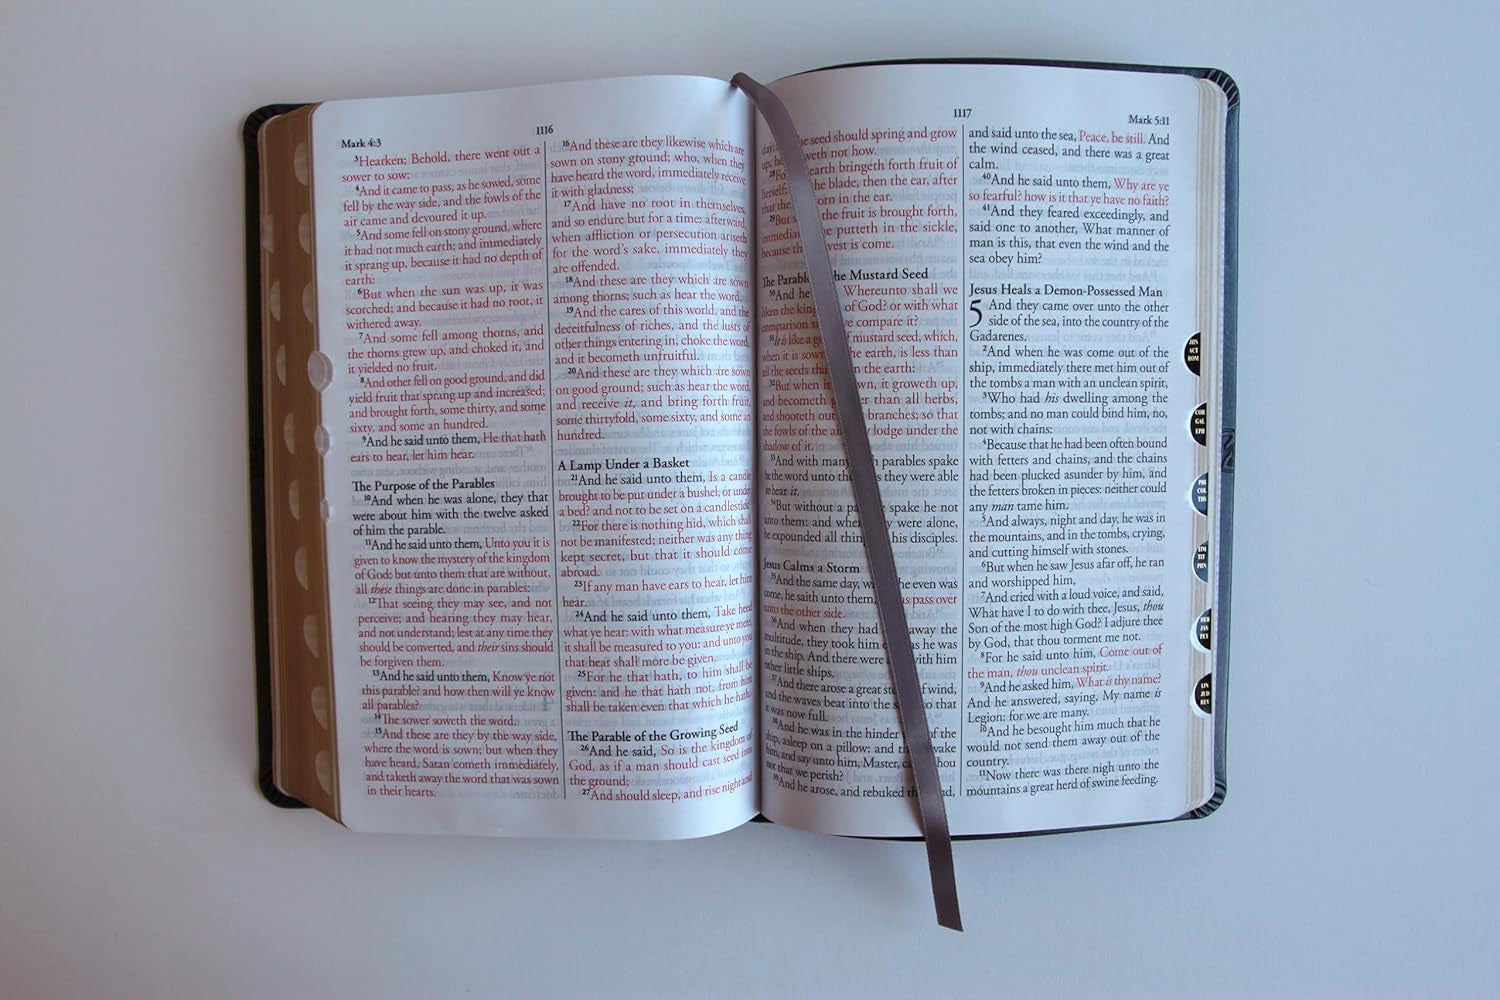 Mark 4:3
1116
³Hearken; Behold, there went out a
sower to sow:
⁴And it came to pass, as he sowed, some
fell by the way side, and the fowls of the
air came and devoured it up.
⁵And some fell on stony ground, where
it had not much earth; and immediately
it sprang up, because it had no depth of
earth:
⁶But when the sun was up, it was
scorched; and because it had no root, it
withered away.
⁷And some fell among thorns, and
the thorns grew up, and choked it, and
it yielded no fruit.
⁸And other fell on good ground, and did
yield fruit that sprang up and increased;
and brought forth, some thirty, and some
sixty, and some an hundred.
⁹And he said unto them, He that hath
ears to hear, let him hear.
The Purpose of the Parables
¹⁰And when he was alone, they that
were about him with the twelve asked
of him the parable.
¹¹And he said unto them, Unto you it is
given to know the mystery of the kingdom
of God: but unto them that are without,
all these things are done in parables:
¹²That seeing they may see, and not
perceive; and hearing they may hear,
and not understand; lest at any time they
should be converted, and their sins should
be forgiven them.
¹³And he said unto them, Know ye not
this parable? and how then will ye know
all parables?
¹⁴The sower soweth the word.
¹⁵And these are they by the way side,
where the word is sown; but when they
have heard, Satan cometh immediately,
and taketh away the word that was sown
in their hearts.
¹⁶And these are they likewise which are
sown on stony ground; who, when they
have heard the word, immediately receive
it with gladness;
¹⁷And have no root in themselves,
and so endure but for a time: afterward,
when affliction or persecution ariseth
for the word's sake, immediately they
are offended.
¹⁸And these are they which are sown
among thorns; such as hear the word,
¹⁹And the cares of this world, and the
deceitfulness of riches, and the lusts of
other things entering in, choke the word,
and it becometh unfruitful.
²⁰And these are they which are sown
on good ground; such as hear the word,
and receive it, and bring forth fruit,
some thirtyfold, some sixty, and some an
hundred.
A Lamp Under a Basket
²¹And he said unto them, Is a candle
brought to be put under a bushel, or under
a bed? and not to be set on a candlestick?
²²For there is nothing hid, which shall
not be manifested; neither was any thing
kept secret, but that it should come
abroad.
²³If any man have ears to hear, let him
hear.
²⁴And he said unto them, Take heed
what ye hear: with what measure ye mete,
it shall be measured to you: and unto you
that hear shall more be given.
²⁵For he that hath, to him shall be
given: and he that hath not, from him
shall be taken even that which he hath.
The Parable of the Growing Seed
²⁶And he said, So is the kingdom of
God, as if a man should cast seed into
the ground;
²⁷And should sleep, and rise night and
1117
Mark 5:11
day, he seed should spring and grow
up, he weth not how.
²⁸For earth bringeth forth fruit of
herself the blade, then the ear, after
that the orn in the ear.
²⁹But the fruit is brought forth,
immedia putteth in the sickle,
because th vest is come.
The Parable he Mustard Seed
³⁰And he Whereunto shall we
liken the king of God? or with what
comparison we compare it?
³¹It is like a g f mustard seed, which,
when it is sown he earth, is less than
all the seeds tha in the earth:
³²But when it wn, it groweth up,
and becometh ter than all herbs,
and shooteth out branches; so that
the fowls of the a y lodge under the
shadow of it.
³³And with many h parables spake
he the word unto the s they were able
to hear it.
³⁴But without a pa spake he not
unto them: and when y were alone,
he expounded all thing his disciples.
Jesus Calms a Storm
³⁵And the same day, w he even was
come, he saith unto them, us pass over
unto the other side.
³⁶And when they had away the
multitude, they took him e as he was
in the ship. And there were a with him
other little ships.
³⁷And there arose a great sto f wind,
and the waves beat into the s so that
it was now full.
³⁸And he was in the hinder of the
ship, asleep on a pillow: and th wake
him, and say unto him, Master, ca thou
not that we perish?
³⁹And he arose, and rebuked th nd,
and said unto the sea, Peace, be still. And
the wind ceased, and there was a great
calm.
⁴⁰And he said unto them, Why are ye
so fearful? how is it that ye have no faith?
⁴¹And they feared exceedingly, and
said one to another, What manner of
man is this, that even the wind and the
sea obey him?
Jesus Heals a Demon-Possessed Man
5 And they came over unto the other
side of the sea, into the country of the
Gadarenes.
²And when he was come out of the
ship, immediately there met him out of
the tombs a man with an unclean spirit,
³Who had his dwelling among the
tombs; and no man could bind him, no,
not with chains:
⁴Because that he had been often bound
with fetters and chains, and the chains
had been plucked asunder by him, and
the fetters broken in pieces: neither could
any man tame him.
⁵And always, night and day, he was in
the mountains, and in the tombs, crying,
and cutting himself with stones.
⁶But when he saw Jesus afar off, he ran
and worshipped him,
⁷And cried with a loud voice, and said,
What have I to do with thee, Jesus, thou
Son of the most high God? I adjure thee
by God, that thou torment me not.
⁸For he said unto him, Come out of
the man, thou unclean spirit.
⁹And he asked him, What is thy name?
And he answered, saying, My name is
Legion: for we are many.
¹⁰And he besought him much that he
would not send them away out of the
country.
¹¹Now there was there nigh unto the
mountains a great herd of swine feeding.
JHN
ACT
ROM
COR
GAL
EPH
PHI
COL
THS
TIM
TIT
PHN
HEB
JAS
PET
JHN
JUD
REV